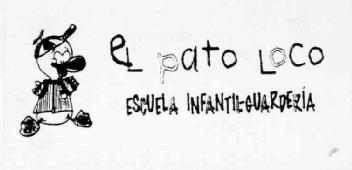 eL pato LOCO
ESCUELA INFANTIL-GUARDERÍA